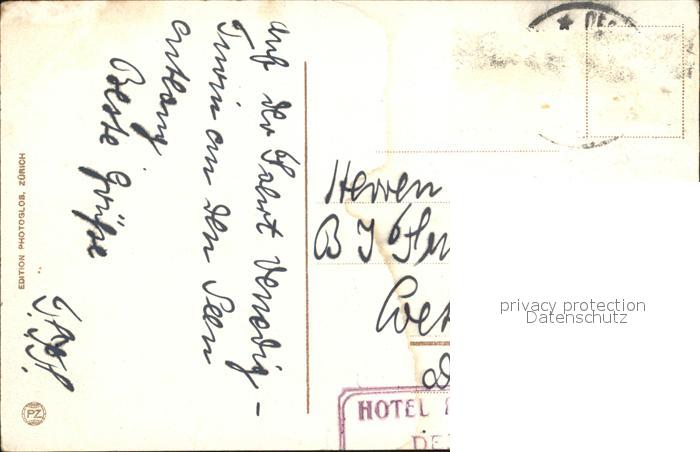 auf der Fahrt Venedig -
Turin an den Seen
entlang
Beste Grüße
EDITION PHOTOGLOB, ZÜRICH
PZ
Herren
B J
HOTEL
privacy protection
Datenschutz